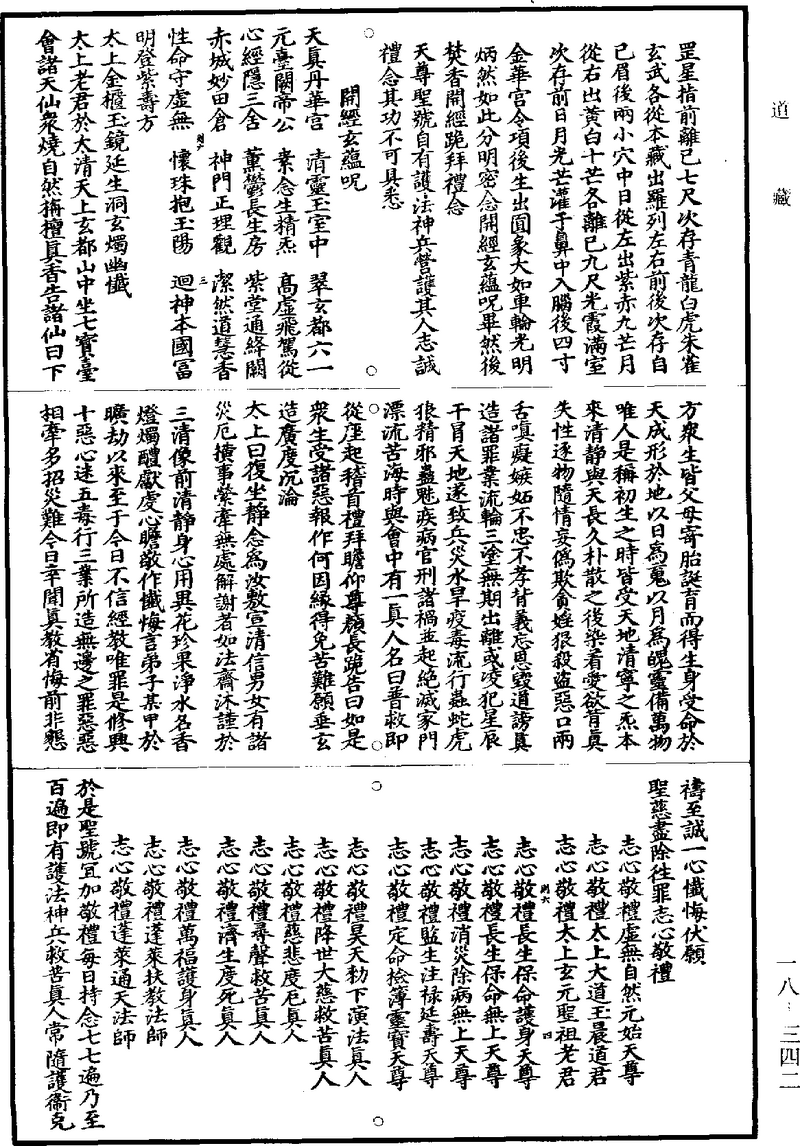 道藏
罡星指前離己七尺次存青龍白虎朱雀
玄武各從本藏出羅列左右前後次存自
己眉後兩小穴中日從左出紫赤九芒月
從右出黃白十芒各離己九尺光霞滿室
次存前日月光芒灌于鼻中入腦後四寸
金華宮令項後生出圓象大如車輪光明
炳然如此分明密念開經玄蘊呪畢然後
焚香開經跪拜禮念
天尊聖號自有護法神兵營護其人志誠
禮念其功不可具悉
開經玄蘊呪
天真丹華宮 清靈玉室中 翠玄都六一
元臺闕帝公 素念生精炁 高虛飛駕從
心經隱三舍 薰鬱長生房 紫堂通絳闕
赤城妙田倉 神門正理觀 潔然道慧香
則六 三
性命守虛無 懷珠抱玉陽 迴神本國冨
明登紫壽方
太上金櫃玉鏡延生洞玄燭幽懺
太上老君於太清天上玄都山中坐七寶臺
會諸天仙衆燒自然旃檀真香告諸仙曰下
方衆生皆父母寄胎誕育而得生身受命於
天成形於地以日為䰟以月為魄靈備萬物
唯人是稱初生之時皆受天地清寧之炁本
來清静與天長久朴散之後染着愛欲盲真
失性逐物隨情妄僞欺貪婬狠殺盜惡口兩
舌嗔癡嫉妬不忠不孝背義忘恩毀道謗真
造諸罪業流輪三塗無期出離或淩犯星辰
干冐天地遂致兵災水旱疫毒流行蟲蛇虎
狼精邪蠱魅疾病官刑諸禍並起絶滅家門
漂流苦海時與會中有一真人名曰普救即
從座起稽首禮拜瞻仰尊顏長跪告曰如是
衆生受諸惡報作何因緣得免苦難願垂玄
造廣度沉淪
太上曰復坐静念為汝敷宣清信男女有諸
災厄撗事縈牽無處解謝者如法齋沐謹於
三清像前清静身心用異花珍果淨水名香
燈燭醴獻䖍心瞻敬作懺悔言弟子某甲於
曠劫以來至于今日不信經教唯罪是修興
十惡心迷五毒行三業所造無邊之罪惡惡
相牽多招災難今日幸聞真教省悔前非懇
禱至誠一心懺悔伏願
聖慈盡除徃罪志心敬禮
志心敬禮虛無自然元始天尊
志心敬禮太上大道玉晨道君
志心敬禮太上玄元聖祖老君
則六 四
志心敬禮長生保命護身天尊
志心敬禮長生保命無上天尊
志心敬禮消災除病無上天尊
志心敬禮監生注禄延壽天尊
志心敬禮定命檢簿靈寳天尊
志心敬禮昊天勑下演法真人
志心敬禮降世大慈救苦真人
志心敬禮慈悲度厄真人
志心敬禮尋聲救苦真人
志心敬禮濟生度死真人
志心敬禮萬福護身真人
志心敬禮蓬萊扶教法師
志心敬禮蓬萊通天法師
於是聖號冝加敬禮每日持念七七遍乃至
百遍即有護法神兵救苦真人常隨護衞克
一八-三四二